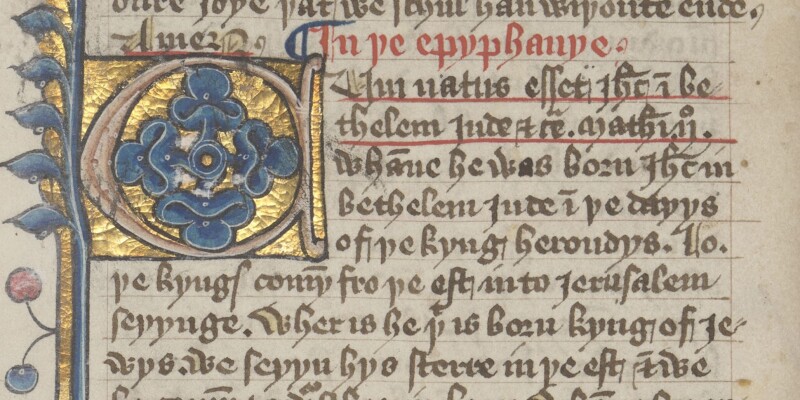 oure joye þat we schul han wiþoute ende.
Amen. In þe epyphanye.
Cum natus esset jħc ī be-
thelem Iude ⁊ cē. Mathi. ij.
whāne he was born jħc in
bethelem Iude ī þe dayys
of þe kyng heroudys. Lo.
þe kyngs comyn fro þe est, in to Jerusalem
seyynge. Wher is he þͭ is born kyng of Je-
wys. we seyyn hys sterre in þe est, ⁊ we